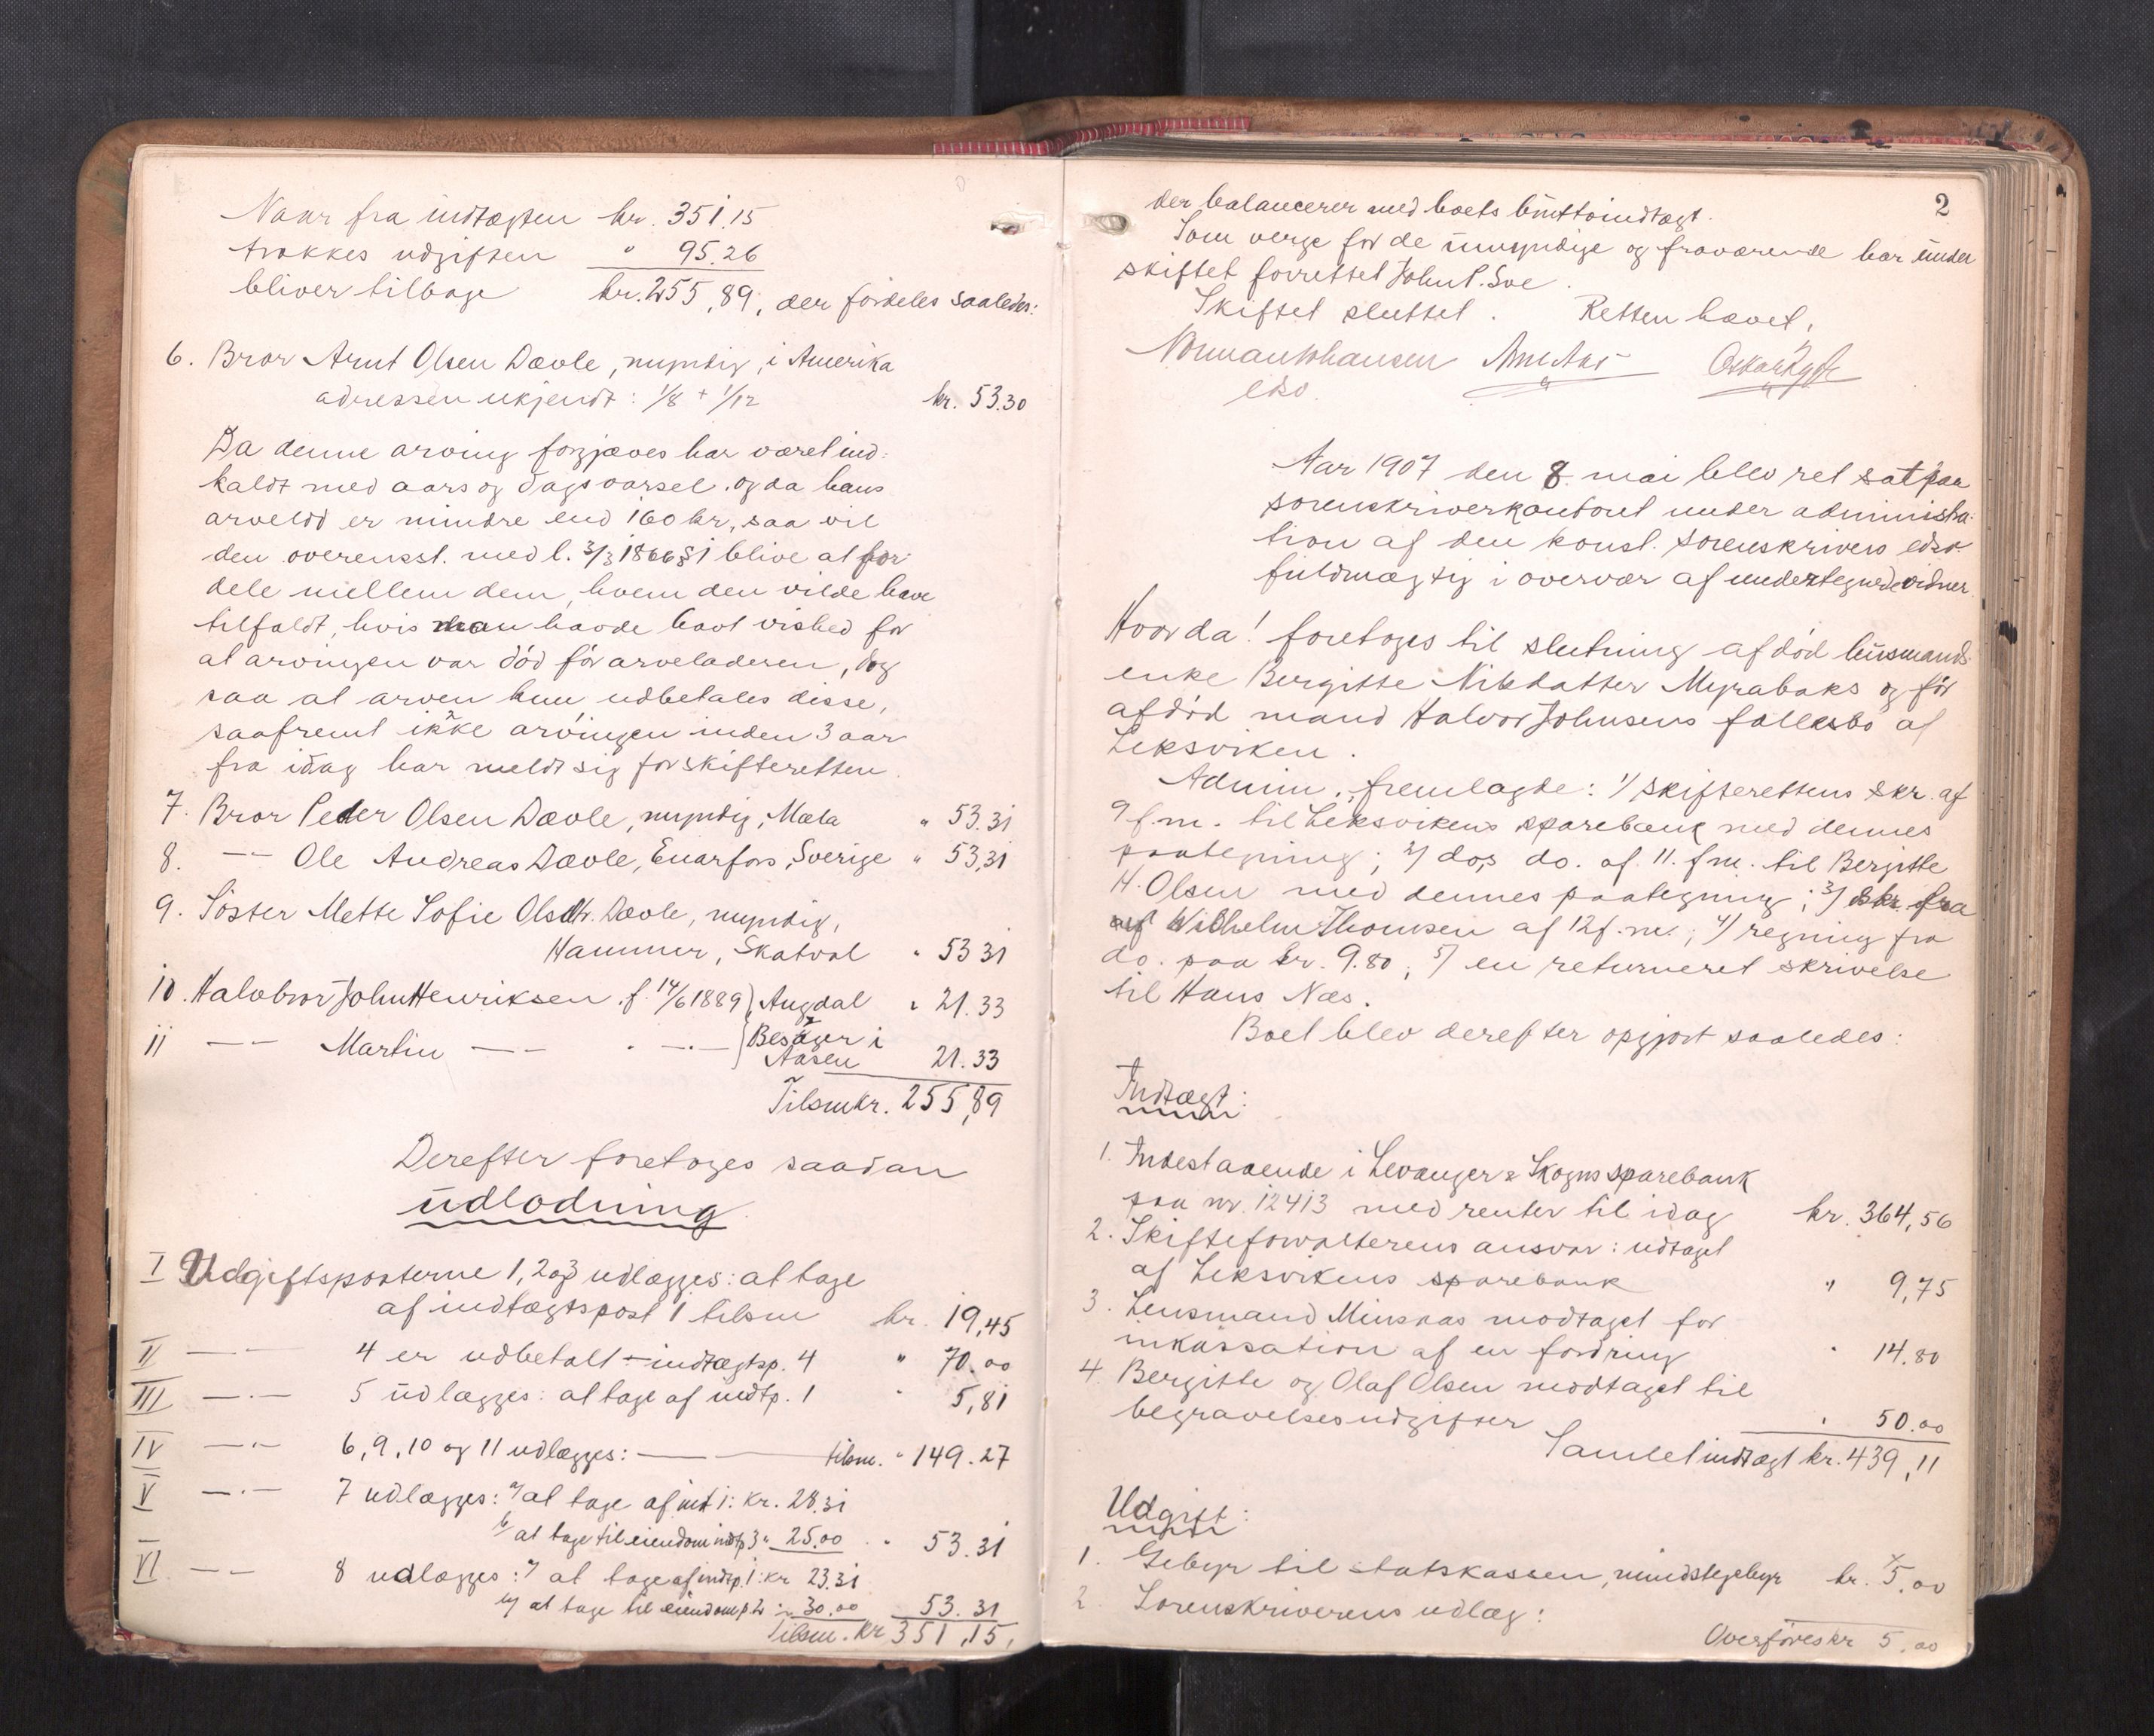 Naar fra indtægten kr. 351.15
trækkes udgiften " 95.26
bliver tilbage kr. 255,89, der fordeles saaledes:
6. Bror Arnt Olsen Dævle, myndig, i Amerika
adressen ukjendt: 1/8 + 1/12 kr. 53.30
Da denne arving forgjæves har været ind-
kaldt med aars og dags varsel og da hans
arvelod er mindre end 160 kr, saa vil
den overensst. med l. 3/3 1866 § 1 blive at for-
dele mellem dem, hvem den vilde have
tilfaldt, hvis man havde havt vished for
at arvingen var död för arveladeren, dog
saa at arven kun udbetales disse,
saafremt ikke arvingen inden 3 aar
fra idag har meldt sig for skifteretten
7. Bror Peder Olsen Dævle, myndig, Mæla " 53.31
8. -"- Ole Andreas Dævle, Enarfors, Sverige " 53,31
9. Söster Mette Sofie Olsdtr. Dævle, myndig,
Hammer, Skatval " 53 31
10. Halvbror John Henriksen f. 14/6 1889 } Augdal " 21.33
11 -"- Martin -"- " -"- } Besøger i
Aasen 21.33
Tilsm kr. 255,89
Derefter foretoges saadan
udlodning
I Udgiftsposterne 1, 2 og 3 udlægges: at tage
af indtægtspost 1 tilsm kr. 19,45
II -"- 4 er udbetalt = indtægtsp. 4 " 70.00
III -"- 5 udlægges: at tage af indtp. 1 " 5,81
IV -"- 6, 9, 10 og 11 udlægges: -"- tilsm. " 149.27
V -"- 7 udlægges: a/ at tage af indt 1: kr. 28.31
b/ at tage til eiendom indtp 3 " 25.00 " 53.31
VI -"- 8 udlægges: a/ at tage af indtp. 1: kr 23.31
b/ at tage til eiendom p 2 : " 30.00 53.31
Tilsm. kr 351,15,
2
der balancerer med boets bruttoindtægt.
Som verge for de umyndige og fraværende har under
skiftet forrettet John P. Sve.
Skiftet sluttet. Retten hævet.
Norman Johansen
edsv.
Aar 1907 den 8 mai blev ret sat paa
sorenskriverkontoret under administra-
tion af den konst. sorenskrivers edsv.
fuldmægtig i overvær af undertegnede vidner.
Hvor da! foretoges til slutning afdöd husmands-
enke Bergitte Nilsdatter Myrabaks og för
afdöd mand Halvor Johnsens fællesbo af
Leksviken.
Admin. fremlagde: 1/ skifterettens skr. af
9 f.m. til Leksvikens sparebank med dennes
paategning; 2/ do,s do. af 11. f.m. til Bergitte
H. Olsen med dennes paategning; 3/ skr. fra
Wilhelm Thomsen af 12 f.m.; 4/ regning fra
do. paa kr. 9.80; 5/ en returneret skrivelse
til Hans Næs.
Boet blev derefter opgjort saaledes:
Indtægt:
1. Indestaaende i Levanger & Skogns sparebank
paa nr. 12413 med renter til idag kr. 364,56
2. Skifteforvalterens ansvar: udtaget
af Leksvikens sparebank " 9,75
3. Lensmand Minsaas modtaget for
inkassation af en fordring " 14.80
4. Bergitte og Olaf Olsen modtaget til
begravelsesudgifter " 50.00
Samlet indtægt kr. 439,11
Udgift:
1. Gebyr til statskassen, mindstegebyr kr. 5,00
2. Sorenskriverens udlæg:
Overföres kr 5,00